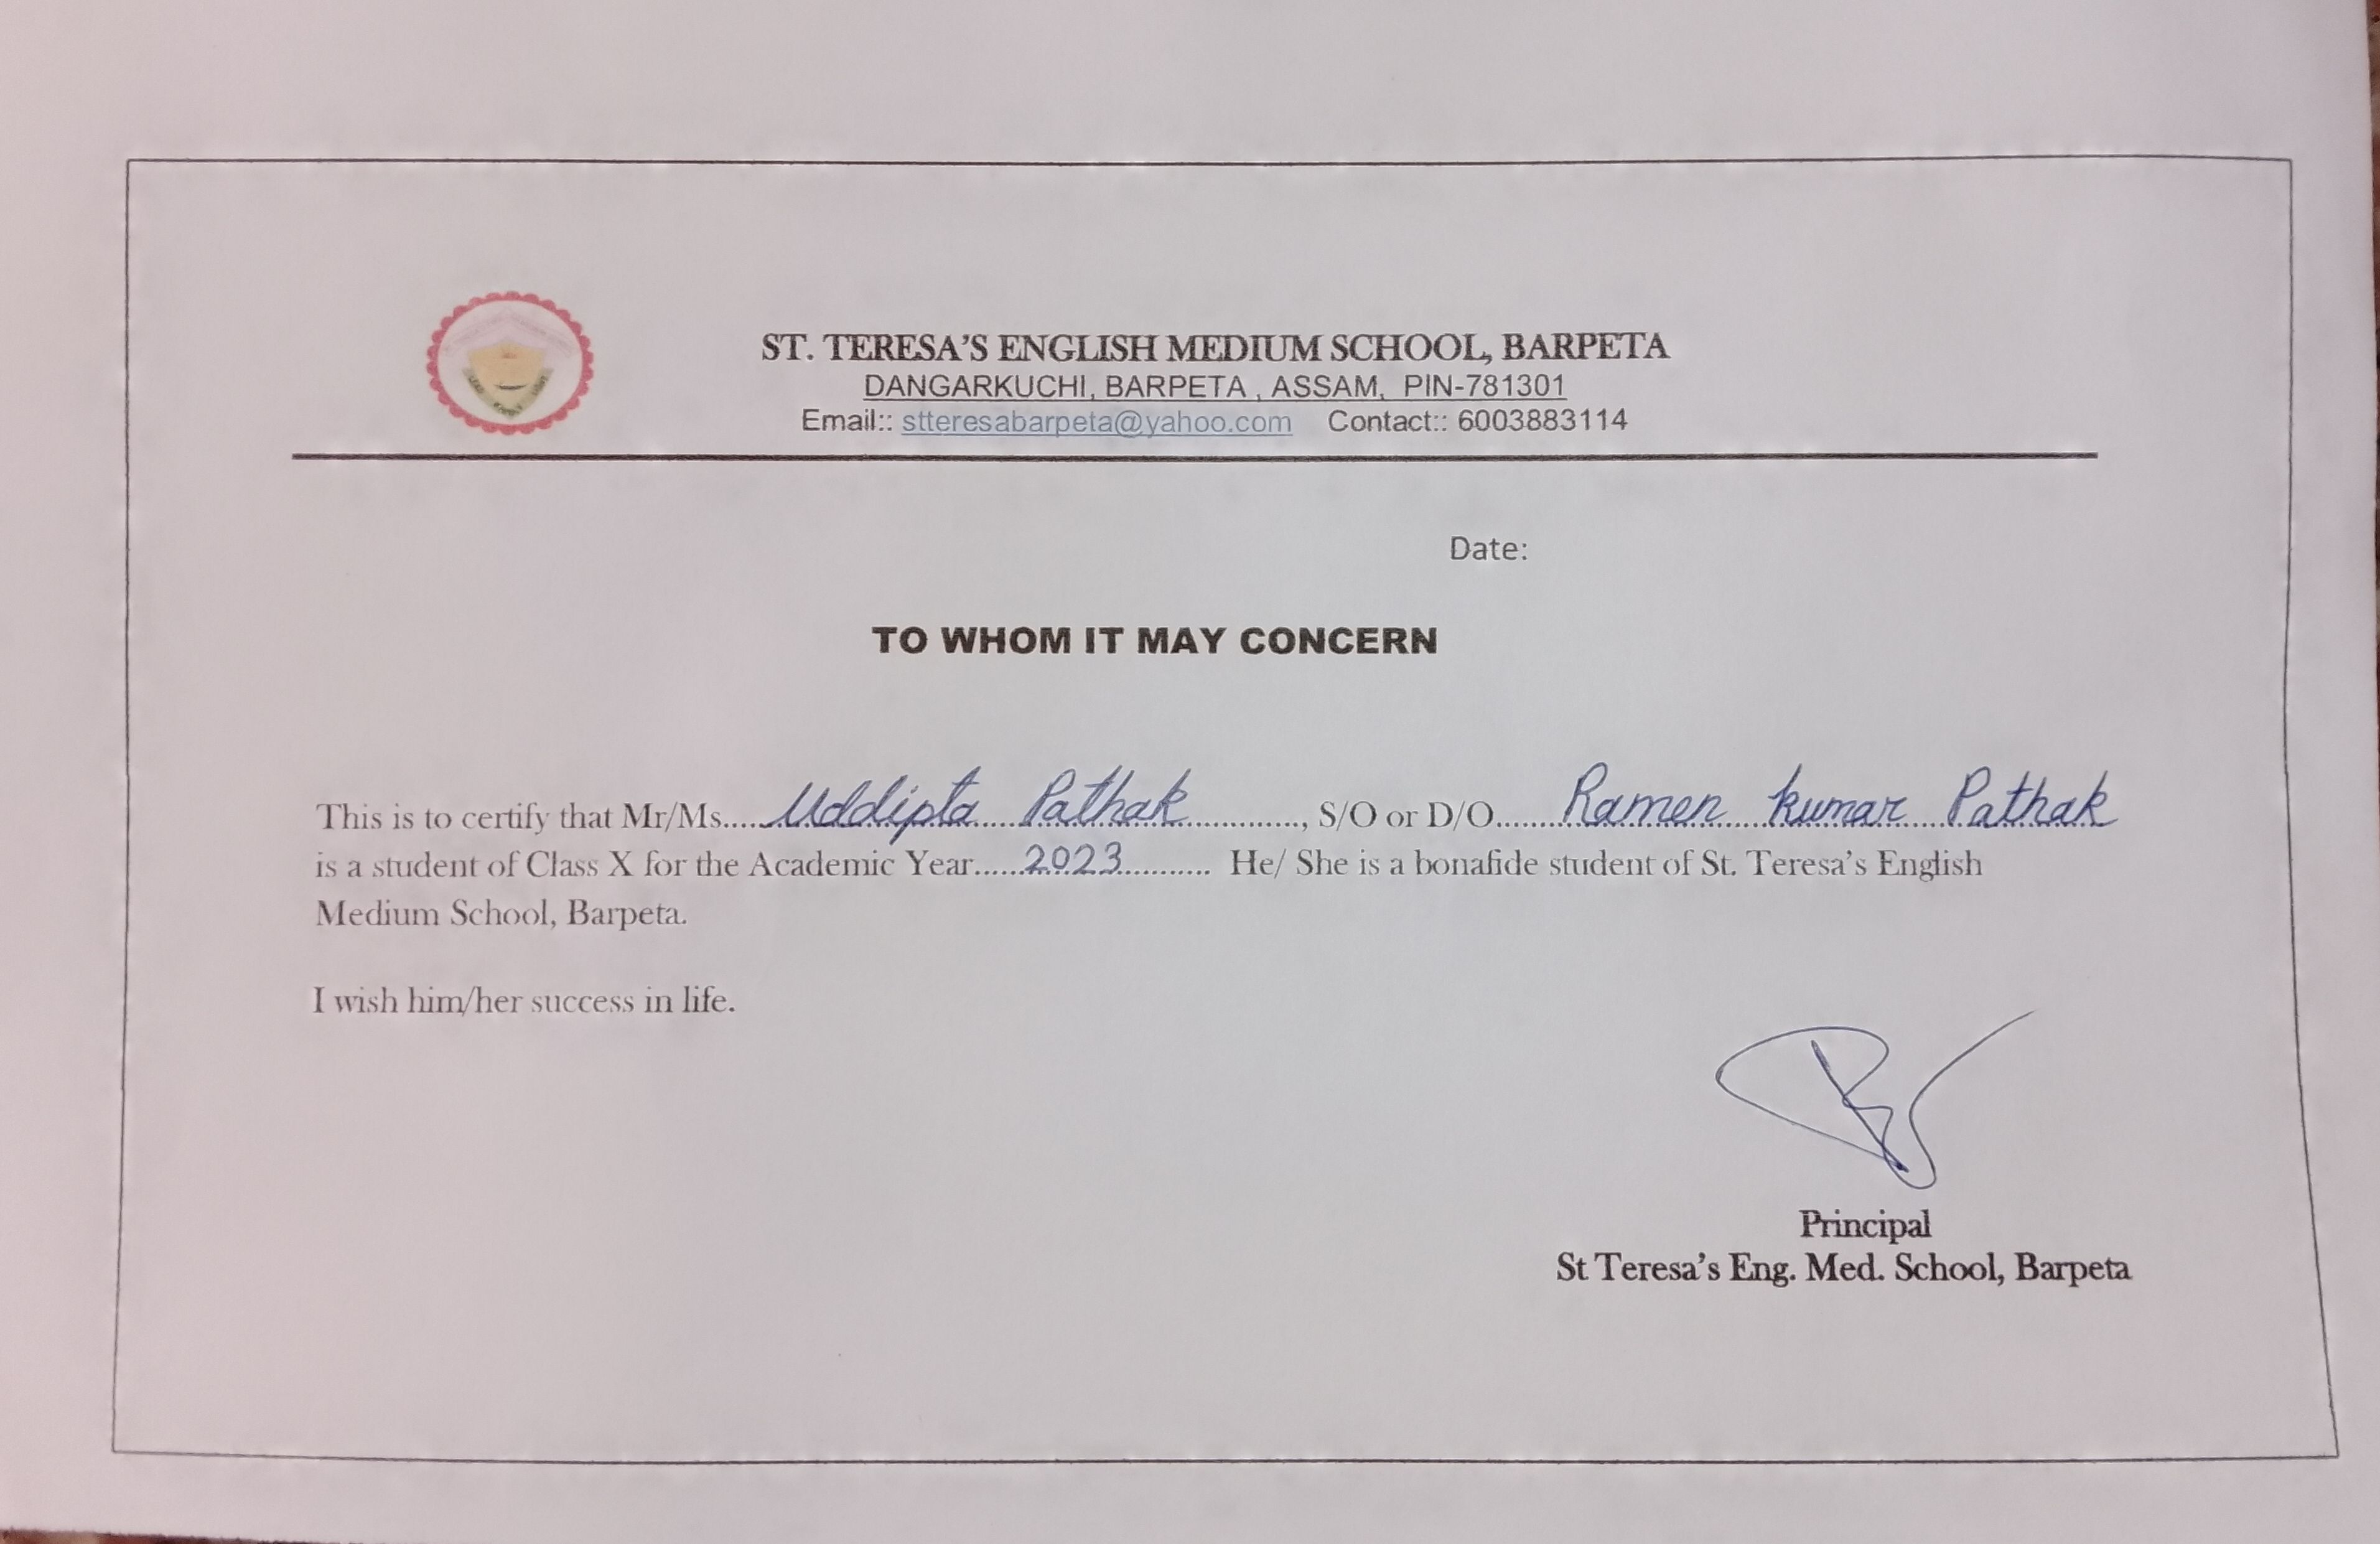 ST. TERESA'S ENGLISH MEDIUM SCHOOL, BARPETA
DANGARKUCHI, BARPETA , ASSAM, PIN-781301
Email:: stteresabarpeta@yahoo.com Contact:: 6003883114
Date:
TO WHOM IT MAY CONCERN
This is to certify that Mr/Ms.....Uddipta Pathak............, S/O or D/O......Ramen kumar Pathak
is a student of Class X for the Academic Year.....2023........... He/ She is a bonafide student of St. Teresa's English
Medium School, Barpeta.
I wish him/her success in life.
Principal
St Teresa's Eng. Med. School, Barpeta